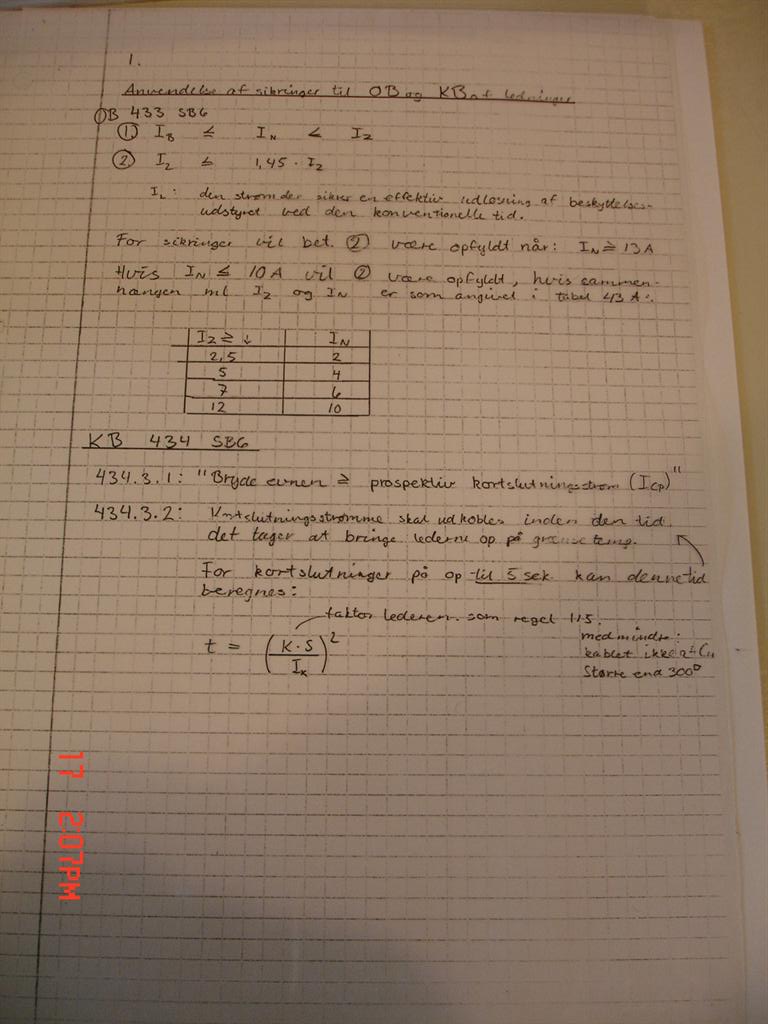 1.
Anvendelse af sikringer til OB og KB af ledninger
OB 433 SBG
① I_B ≤ I_N < I_Z
② I_2 ≤ 1,45 · I_Z
den strøm der sikrer en effektiv udløsning af beskyttelses-
udstyret ved den konventionelle tid.
For sikringer vil bet. ② være opfyldt når: I_N ≥ 13A
Hvis I_N ≤ 10A vil ② være opfyldt, hvis sammen-
hængen ml I_Z og I_N er som angivet i tabel 43 A:
I_Z ≥ ↓ I_N
2,5 2
5 4
7 6
12 10
KB 434 SBG
434.3.1: "Bryde evnen ≥ prospektiv kortslutningsstrøm (I_CP)"
434.3.2: Kortslutningsstrømme skal udkobles inden den tid
det tager at bringe lederne op på grænsetemp.
For kortslutninger på op til 5 sek kan denne tid
beregnes:
faktor lederen. som regel 115.
t = (K·S / I_K)²
med mindre:
kablet ikke
Større end 300°
17 2:07PM